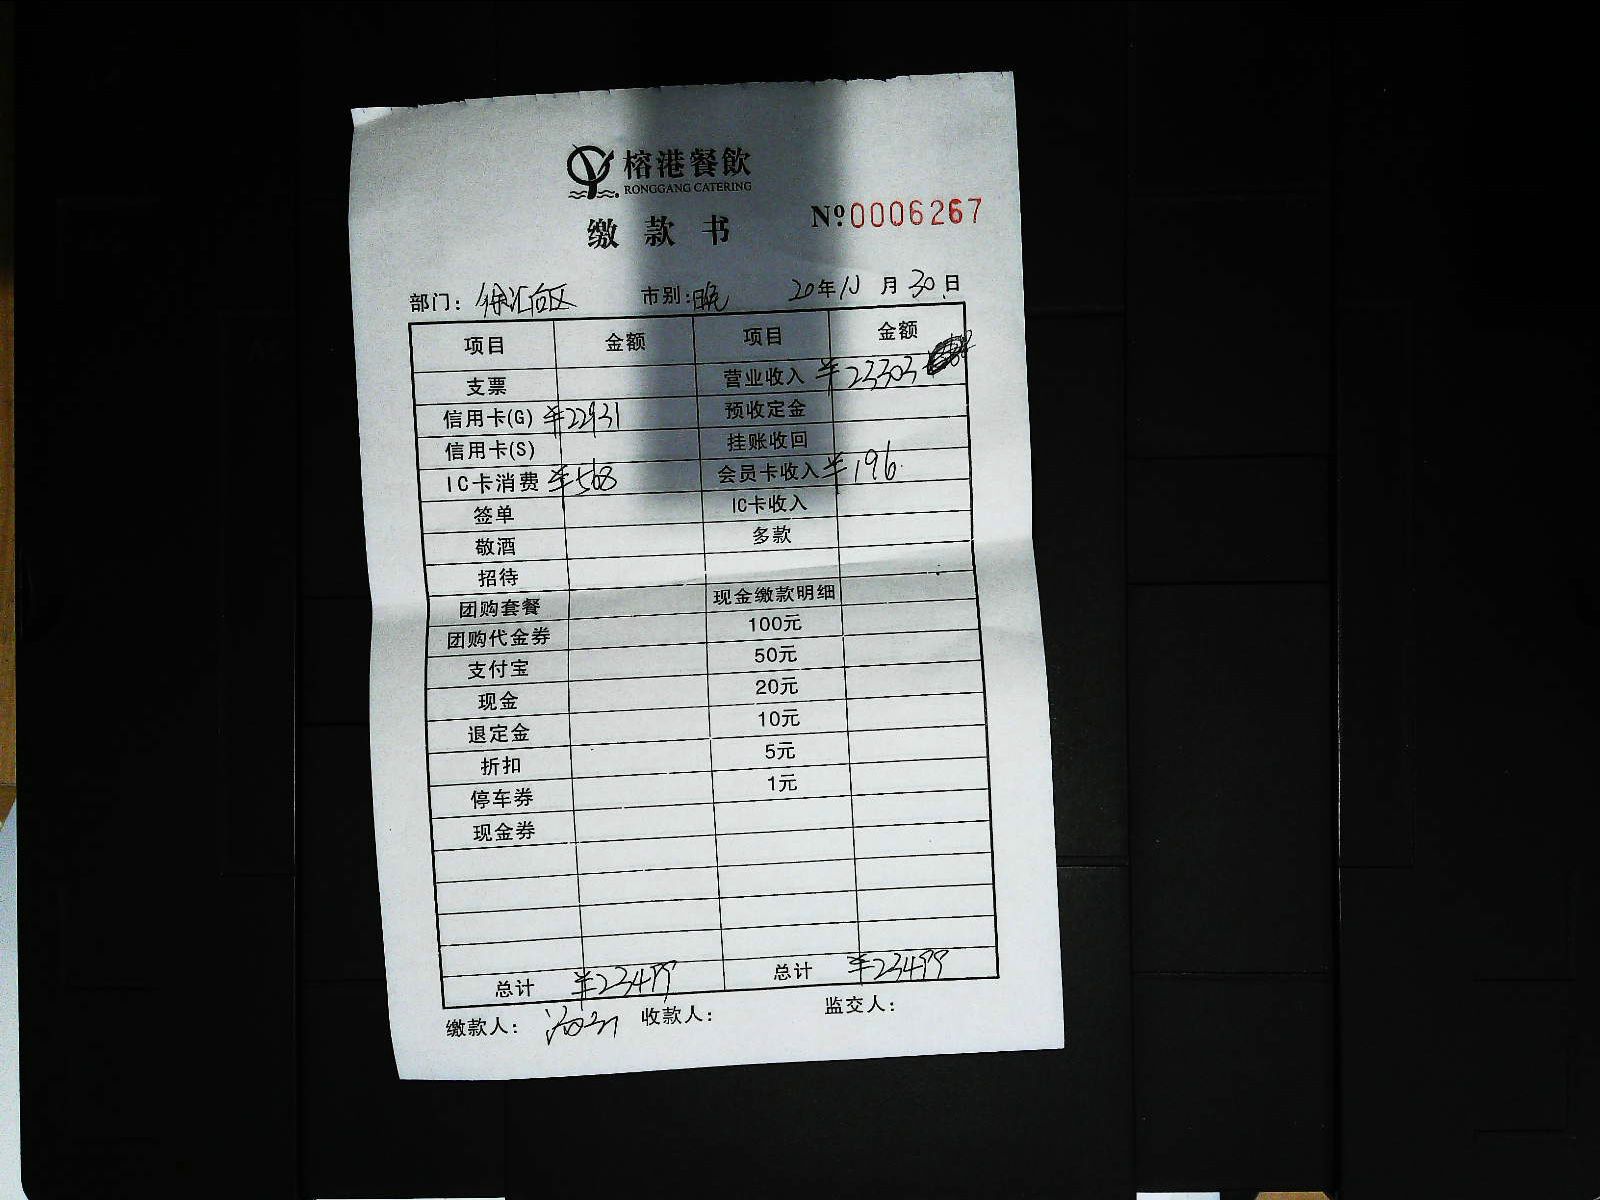 榕港餐飲
RONGGANG CATERING
缴款书 Nº0006267
部门: 徐汇百区 市别: 晚 20年10月30日
项目 金额 项目 金额
支票 营业收入 ¥23303
信用卡(G) ¥22931 预收定金
信用卡(S) 挂账收回
IC卡消费 ¥568 会员卡收入 ¥196
签单 IC卡收入
敬酒 多款
招待
团购套餐 现金缴款明细
团购代金券 100元
支付宝 50元
现金 20元
退定金 10元
折扣 5元
停车券 1元
现金券
总计 ¥23499 总计 ¥23499
缴款人: 收款人: 监交人: